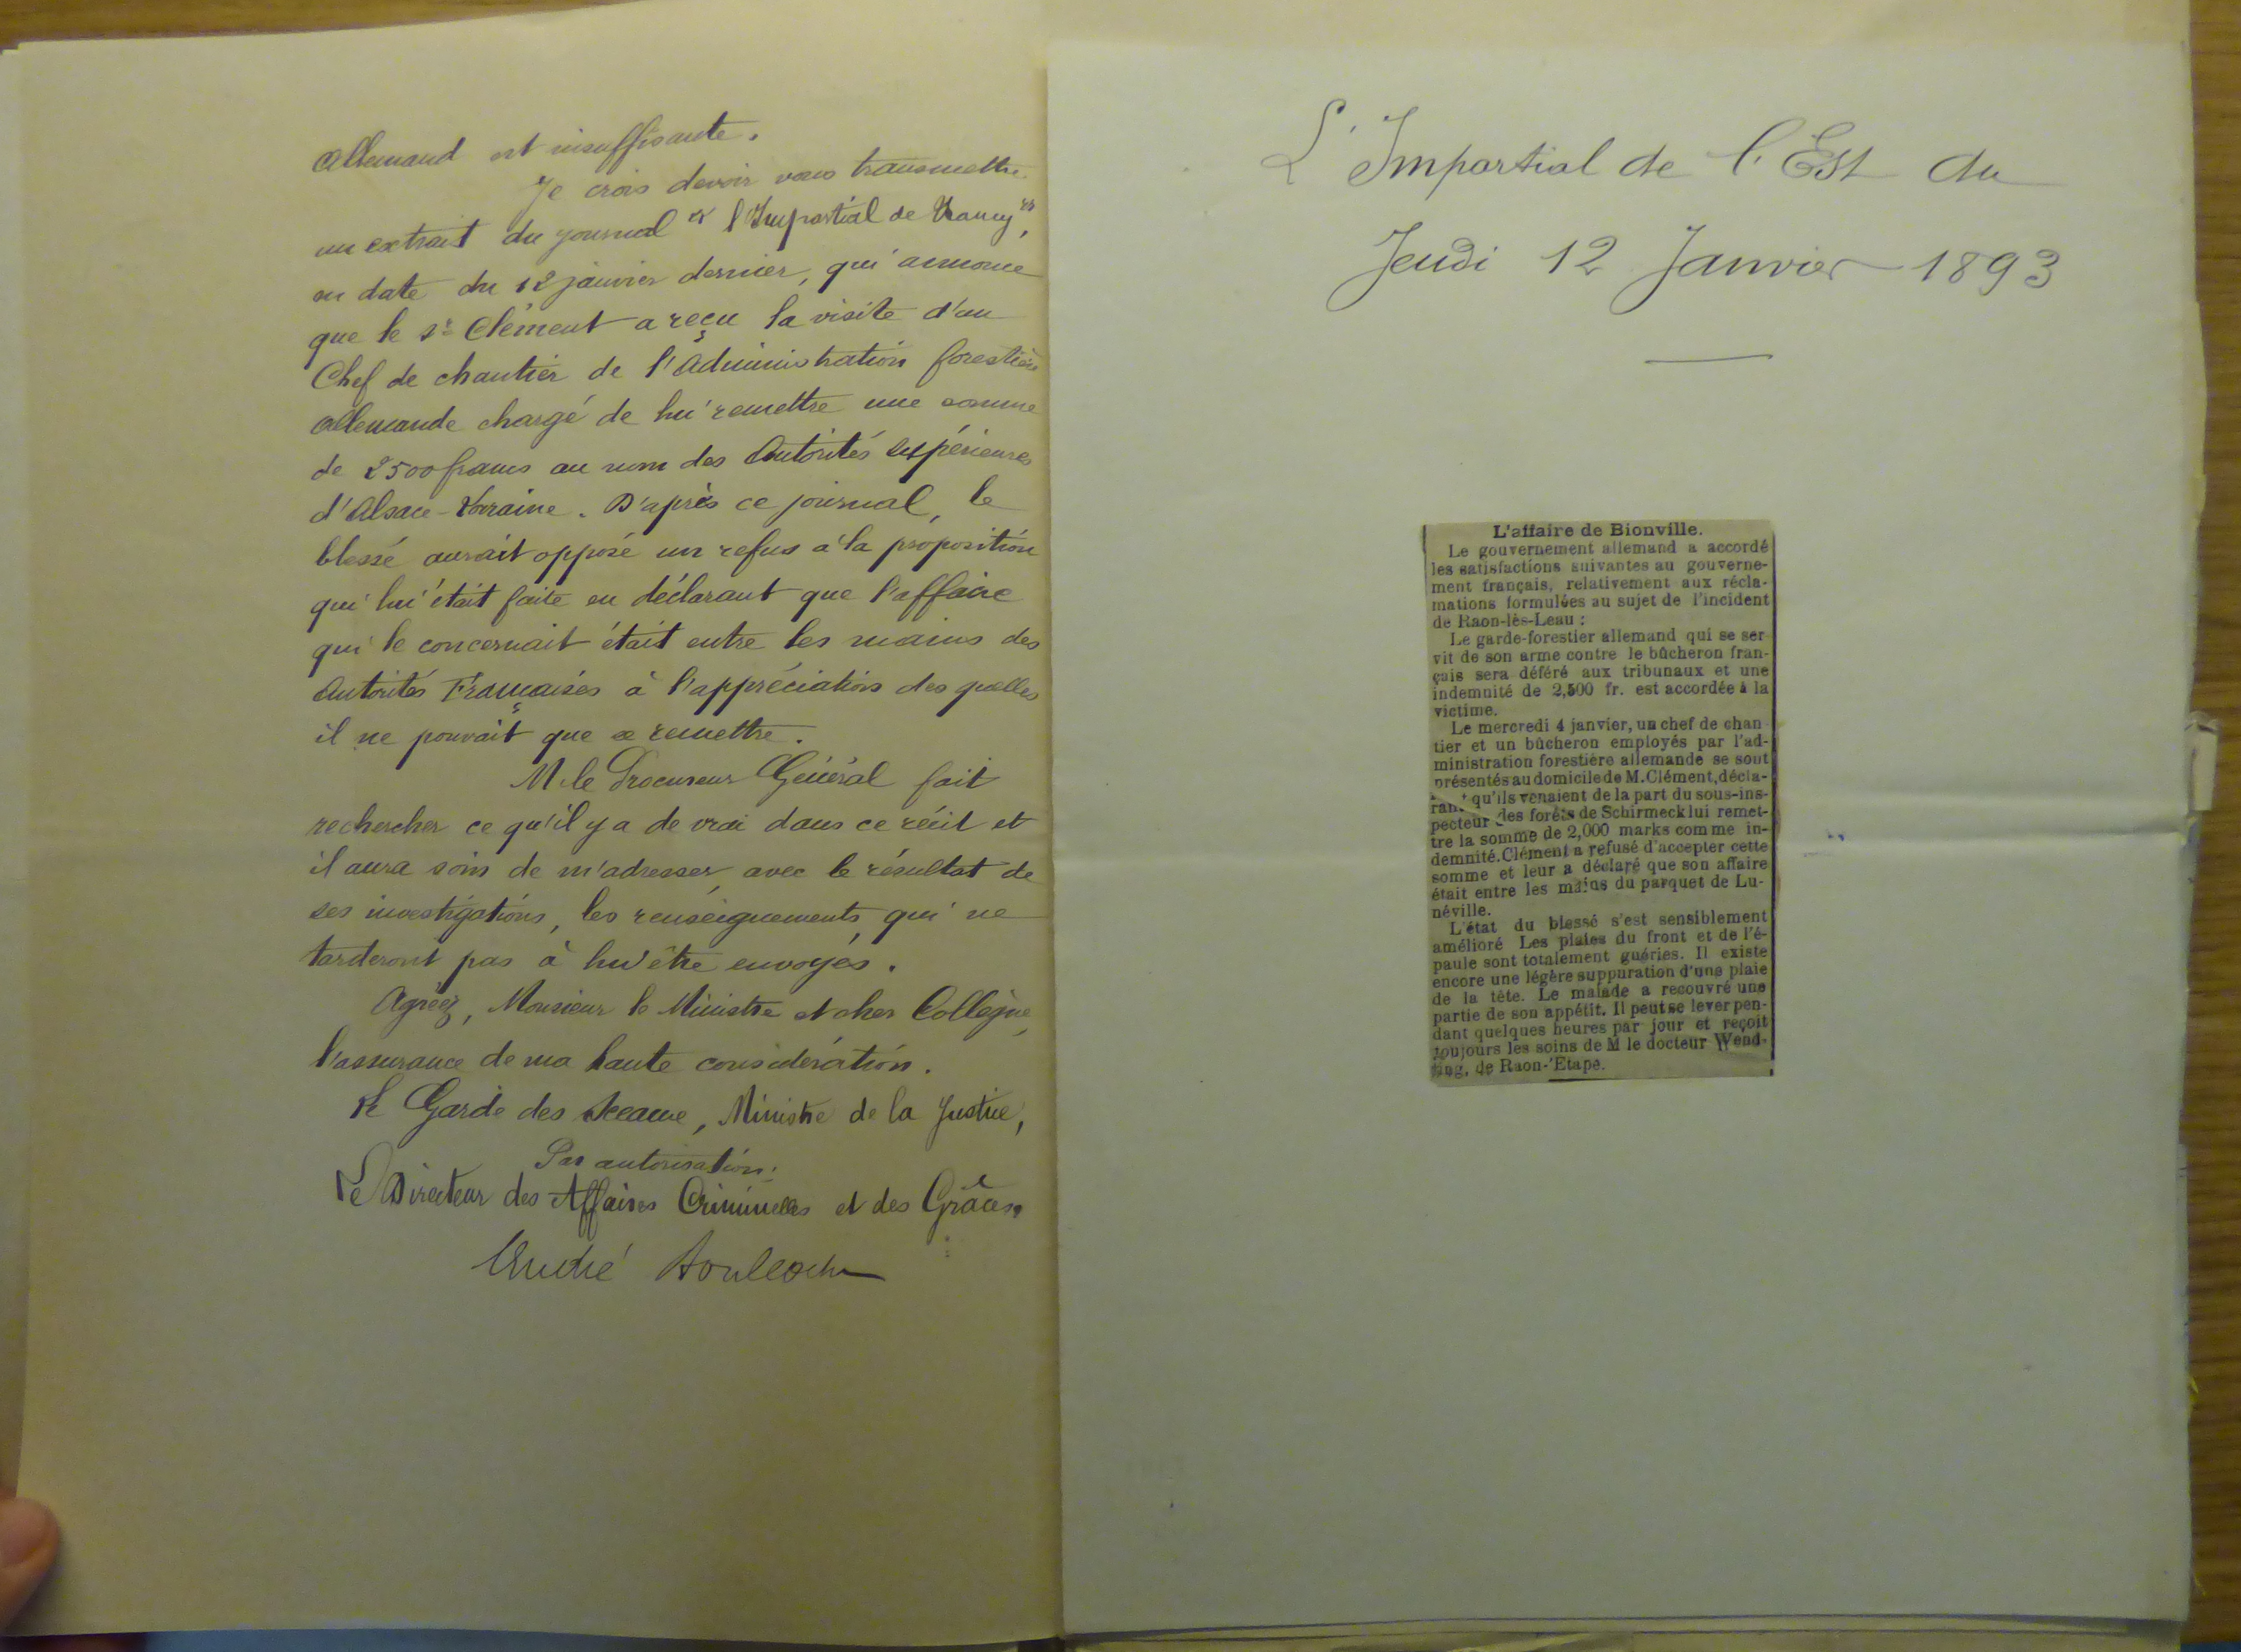 Allemand est insuffisante.
Je crois devoir vous transmettre
un extrait du journal "l'Impartial de Nancy",
en date du 12 janvier dernier, qui annonce
que le Sr Clément a reçu la visite d'un
Chef de chantier de l'Administration forestière
allemande chargé de lui remettre une somme
de 2500 francs au nom des Autorités supérieures
d'Alsace-Lorraine. D'après ce journal, le
blessé aurait opposé un refus à la proposition
qui lui était faite en déclarant que l'affaire
qui le concernait était entre les mains des
Autorités Françaises à l'appréciation des quelles
il ne pouvait que se remettre.
M. le Procureur Général fait
rechercher ce qu'il y a de vrai dans ce récit et
il aura soin de m'adresser, avec le résultat de
ses investigations, les renseignements, qui ne
tarderont pas à lui être envoyés.
Agréez, Monsieur le Ministre et cher Collègue,
l'assurance de ma haute considération.
Le Garde des Sceaux, Ministre de la Justice,
Par autorisation:
Le Directeur des Affaires Criminelles et des Grâces,
André Boulloche
L'Impartial de l'Est du
Jeudi 12 Janvier 1893
L'affaire de Bionville.
Le gouvernement allemand a accordé
les satisfactions suivantes au gouverne-
ment français, relativement aux récla-
mations formulées au sujet de l'incident
de Raon-lès-Leau :
Le garde-forestier allemand qui se ser
vit de son arme contre le bûcheron fran-
çais sera déféré aux tribunaux et une
indemnité de 2,500 fr. est accordée à la
victime.
Le mercredi 4 janvier, un chef de chan
tier et un bûcheron employés par l'ad-
ministration forestière allemande se sont
présentés au domicile de M. Clément, décla-
rant qu'ils venaient de la part du sous-ins-
pecteur des forêts de Schirmeck lui remet-
tre la somme de 2,000 marks comme in-
demnité. Clément a refusé d'accepter cette
somme et leur a déclaré que son affaire
était entre les mains du parquet de Lu-
néville.
L'état du blessé s'est sensiblement
amélioré Les plaies du front et de l'é-
paule sont totalement guéries. Il existe
encore une légère suppuration d'une plaie
de la tête. Le malade a recouvré une
partie de son appétit. Il peut se lever pen-
dant quelques heures par jour et reçoit
toujours les soins de M le docteur Wend-
ling, de Raon-'Etape.